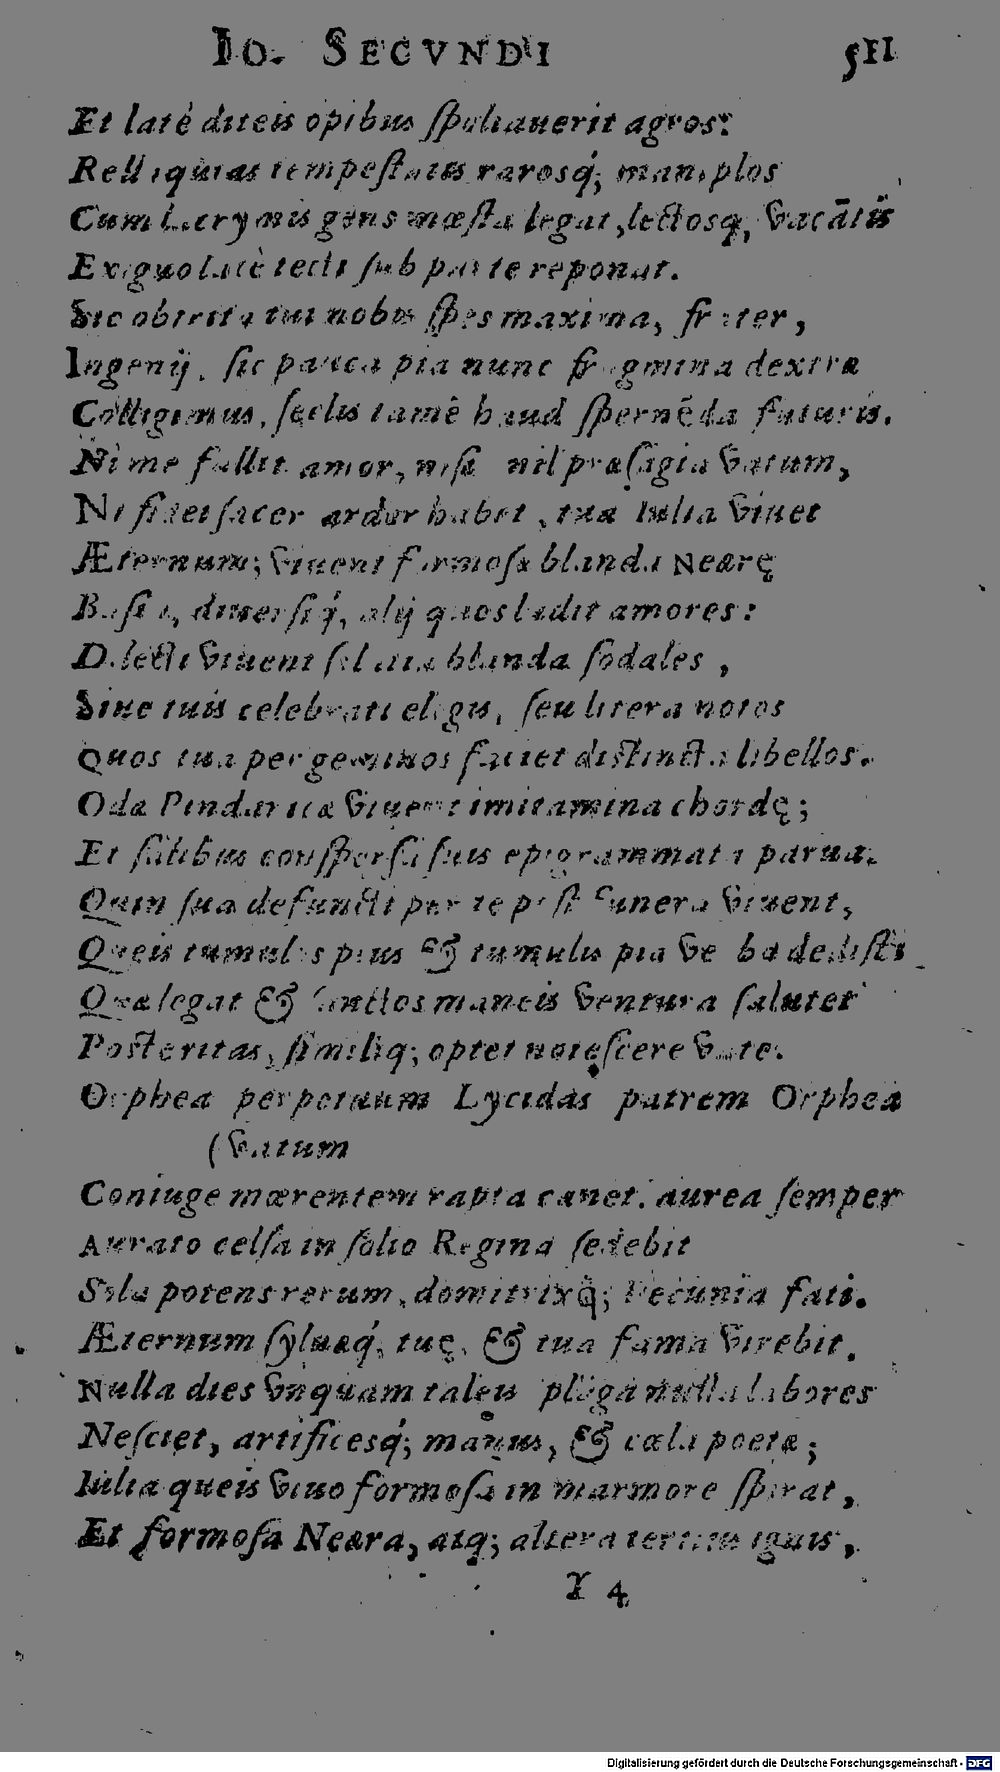 Io. SECVNDI 511
Et latè diteis opibus ſpoliauerit agros:
Relliquias tempeſtatis rarosq́; maniplos
Cum lacrymis gens mœſta legat, lectosq, vacātis
Exiguo latè tecti ſub parte reponat.
Sic obtrita tui nobis ſpes maxima, frater,
Ingenij, ſic pauca pia nunc fragmina dextra
Colligimus, ſeclis tamē haud ſpernēda futuris.
Ni me fallit amor, niſi nil præſagia vatum,
Ni fidei ſacer ardor habet, tua Iulia viuet
Æternum; viuent formoſæ blanda Neærę
Baſia, diuerſiq́, alij quos ludit amores:
Dilecti viuent blanda ſodales,
Siue tuis celebrati elegis, ſeu litera notos
Quos tua per geminos faciet diſtincta libellos.
Oda Pindaricæ viuent imitamina chordę;
Et ſalibus conſperſa ſuis epigrammata parua.
Quin ſua defuncti per te poſt funera viuent,
Queis tumulos pius & tumulis pia verba dediſti
Quæ legat & ſanctos maneis ventura ſalutet
Poſteritas, ſimiliq; optet noteſcere vate.
Orphea perpetuum Lycidas patrem Orphea
(vatum
Coniuge mœrentem rapta canet: aurea ſemper
Aurato celſa in ſolio Regina ſedebit
Sola potens rerum, domitrixq̃; Pecunia fati.
Æternum ſyluæq́, tuę, & tua fama virebit.
Nulla dies vnquam taleis plaga nulla labores
Neſciet, artificesq́; manus, & cæla poetæ;
Iulia queis viuo formoſa in marmore ſpirat,
Et formoſa Neæra, atq; altera tertius ignis,
Y 4
Digitalisierung gefördert durch die Deutsche Forschungsgemeinschaft - DFG